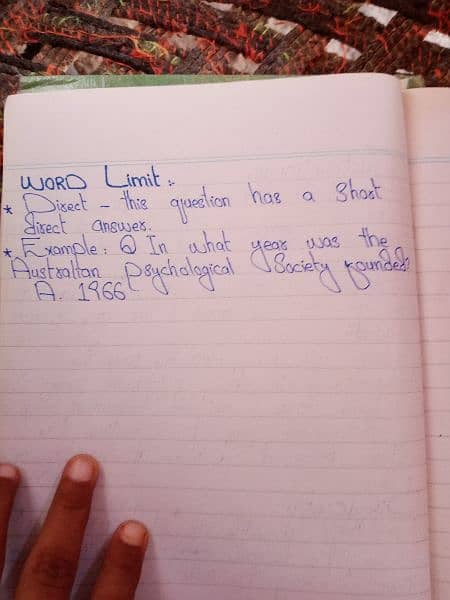 WORD Limit :-
* Direct - this question has a short
direct answer.
* Example: Q In what year was the
Australian Psychological Society founded?
A. 1966